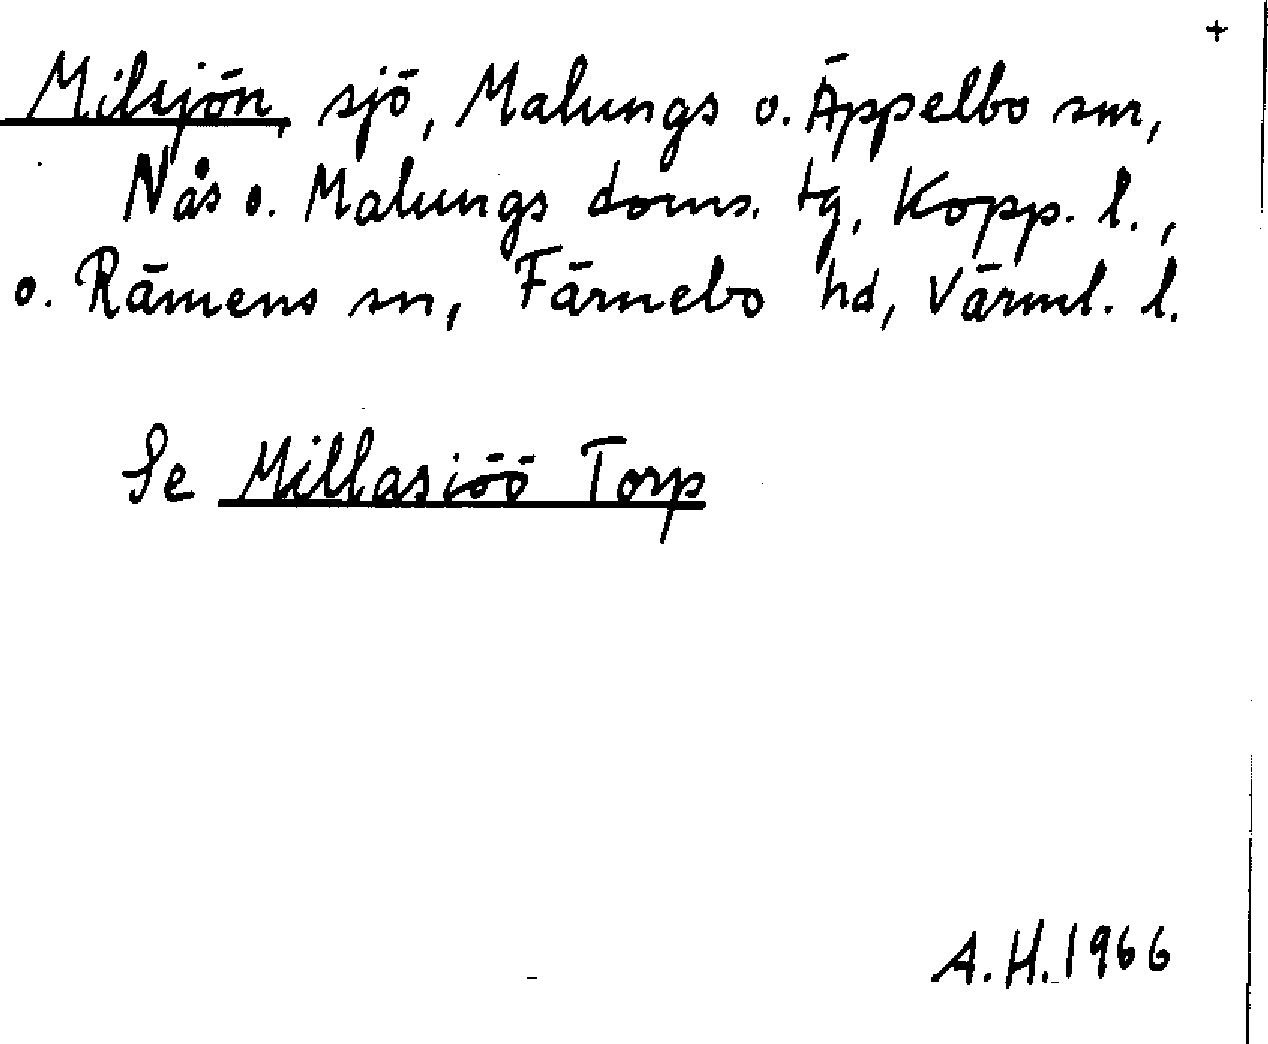 +
Milsjön, sjö, Malungs o. Äppelbo snr,
Nås o. Malungs doms. tg, Kopp. l.,
o. Rämens sn, Färnebo hd, Värml. l.
Se Millasiöö Torp
A.H. 1966